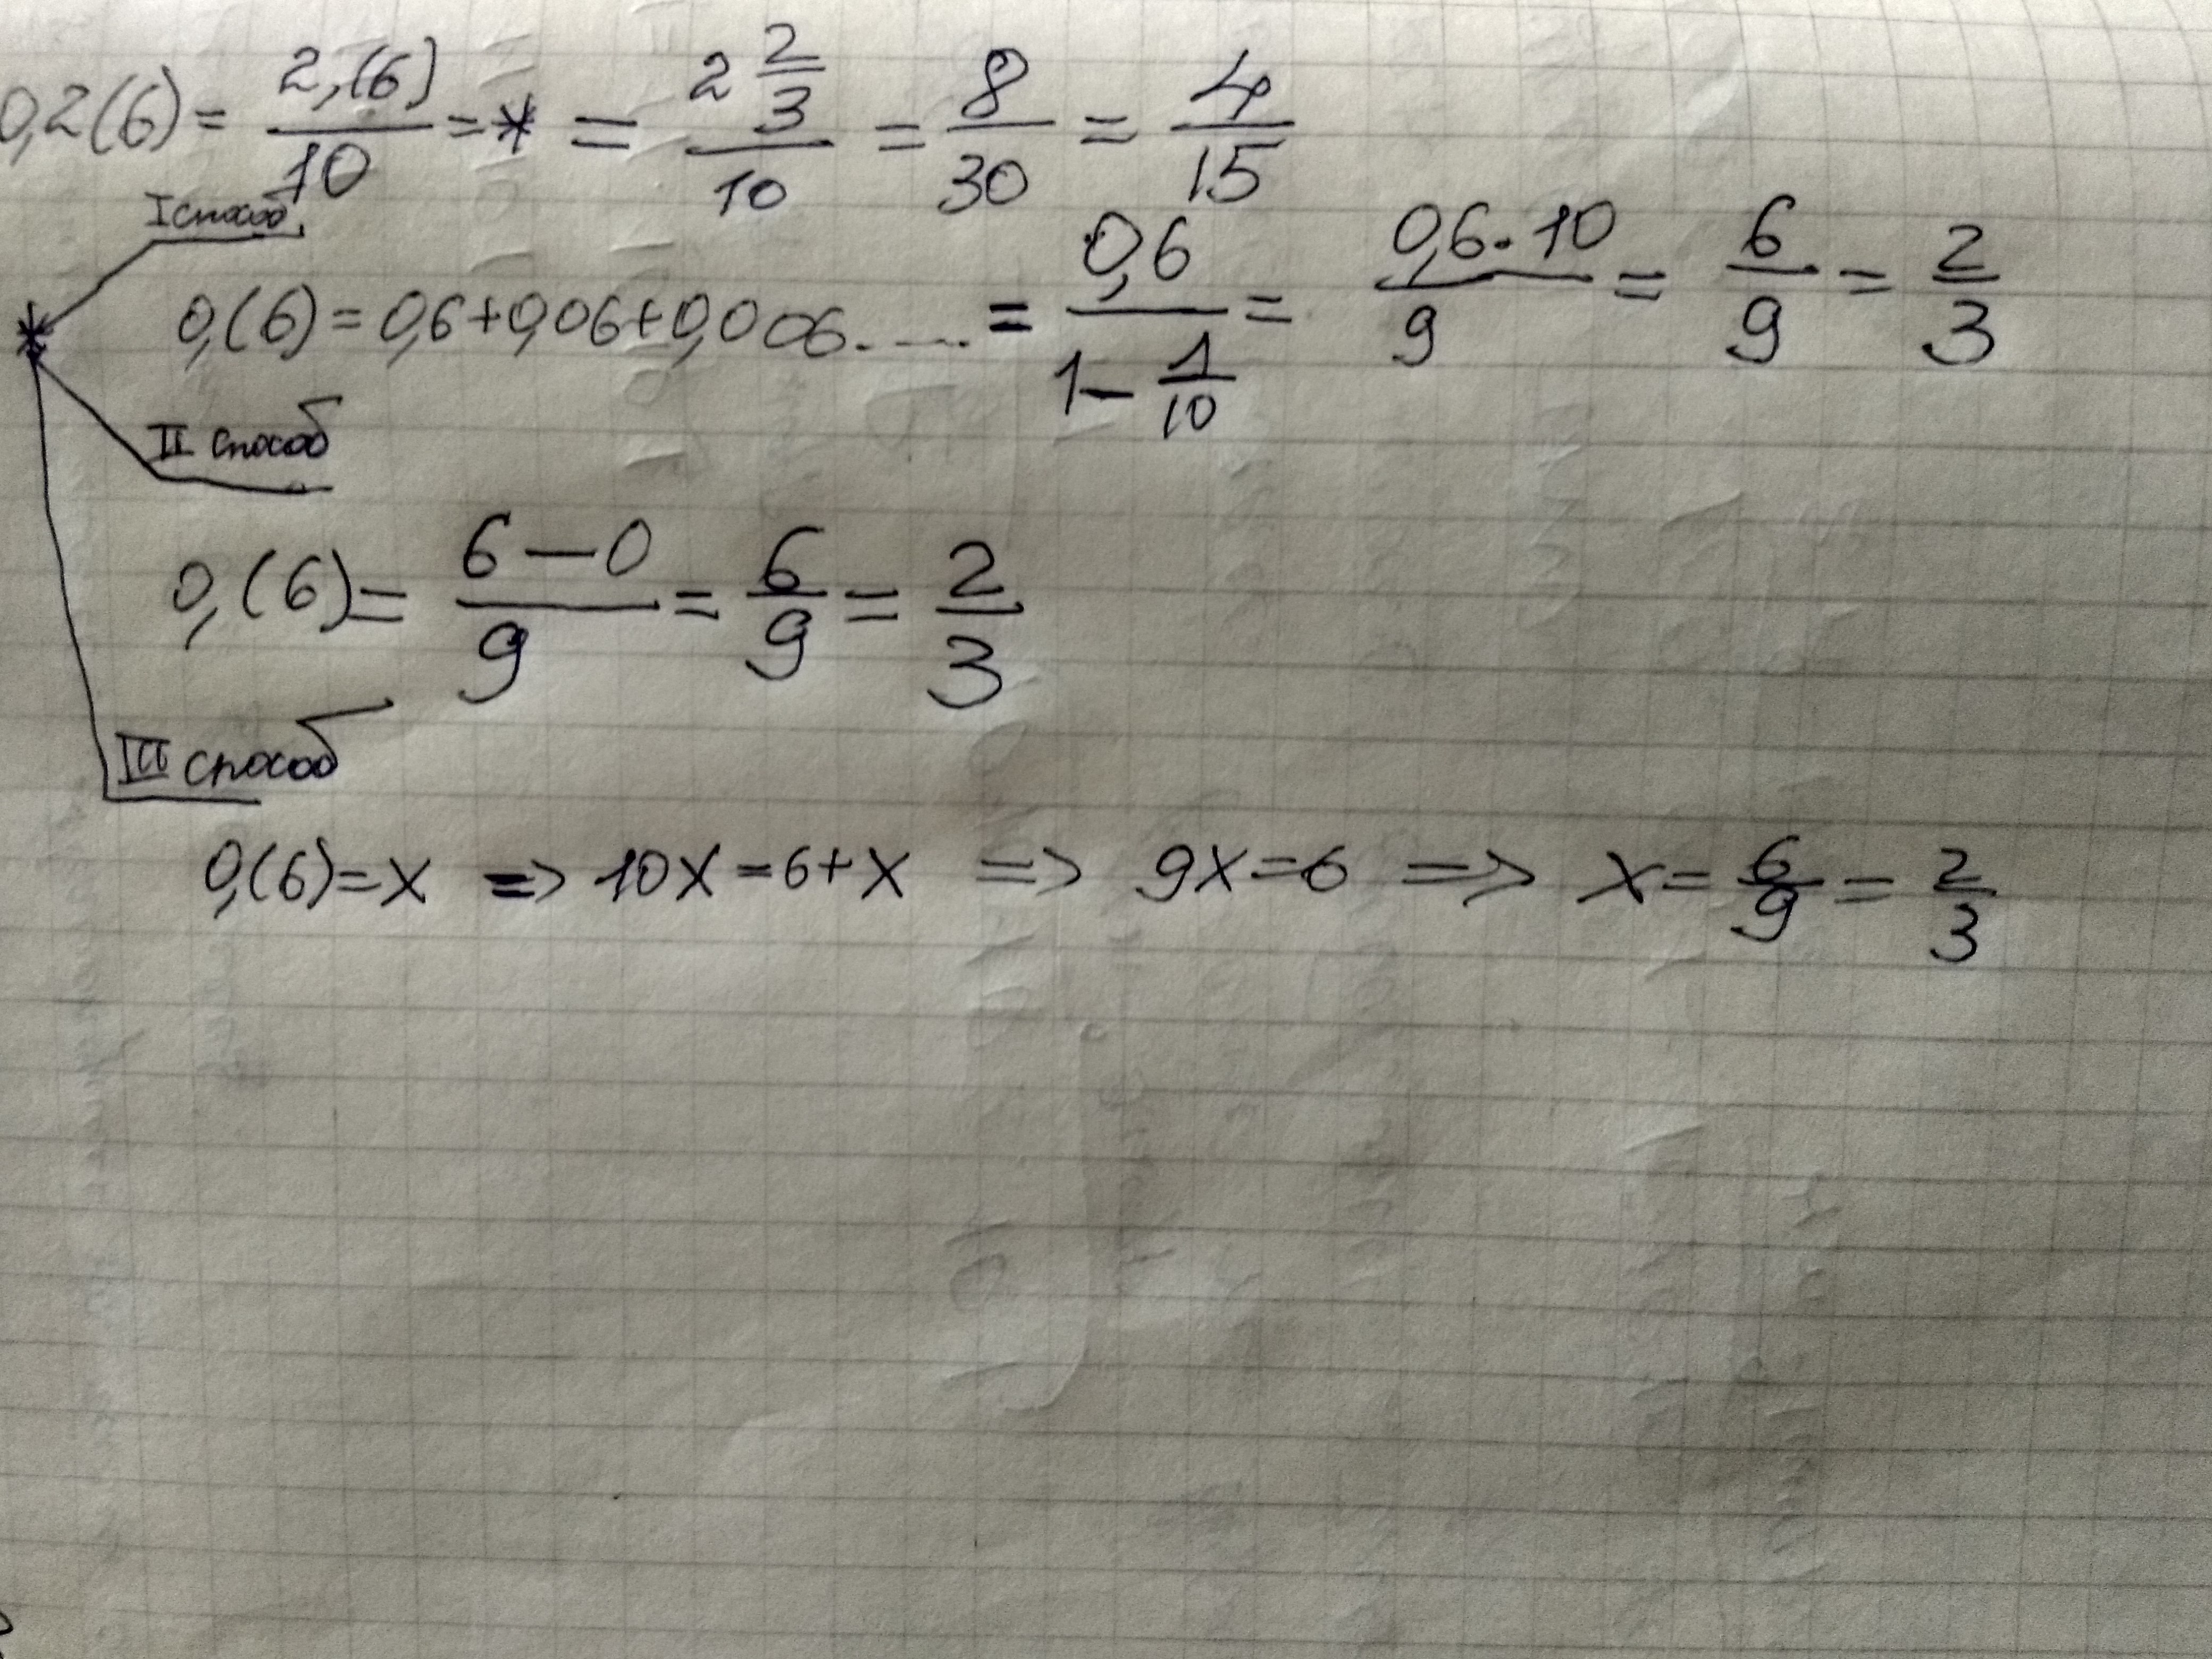 0,2(6) = 2,(6)/10 = * = 2 2/3 / 10 = 8/30 = 4/15
I способ
* 0,(6) = 0,6+0,06+0,006..... = 0,6 / (1 - 1/10) = 0,6·10/9 = 6/9 = 2/3
II способ
0,(6) = 6-0/9 = 6/9 = 2/3
III способ
0,(6)=x => 10x=6+x => 9x=6 => x=6/9=2/3